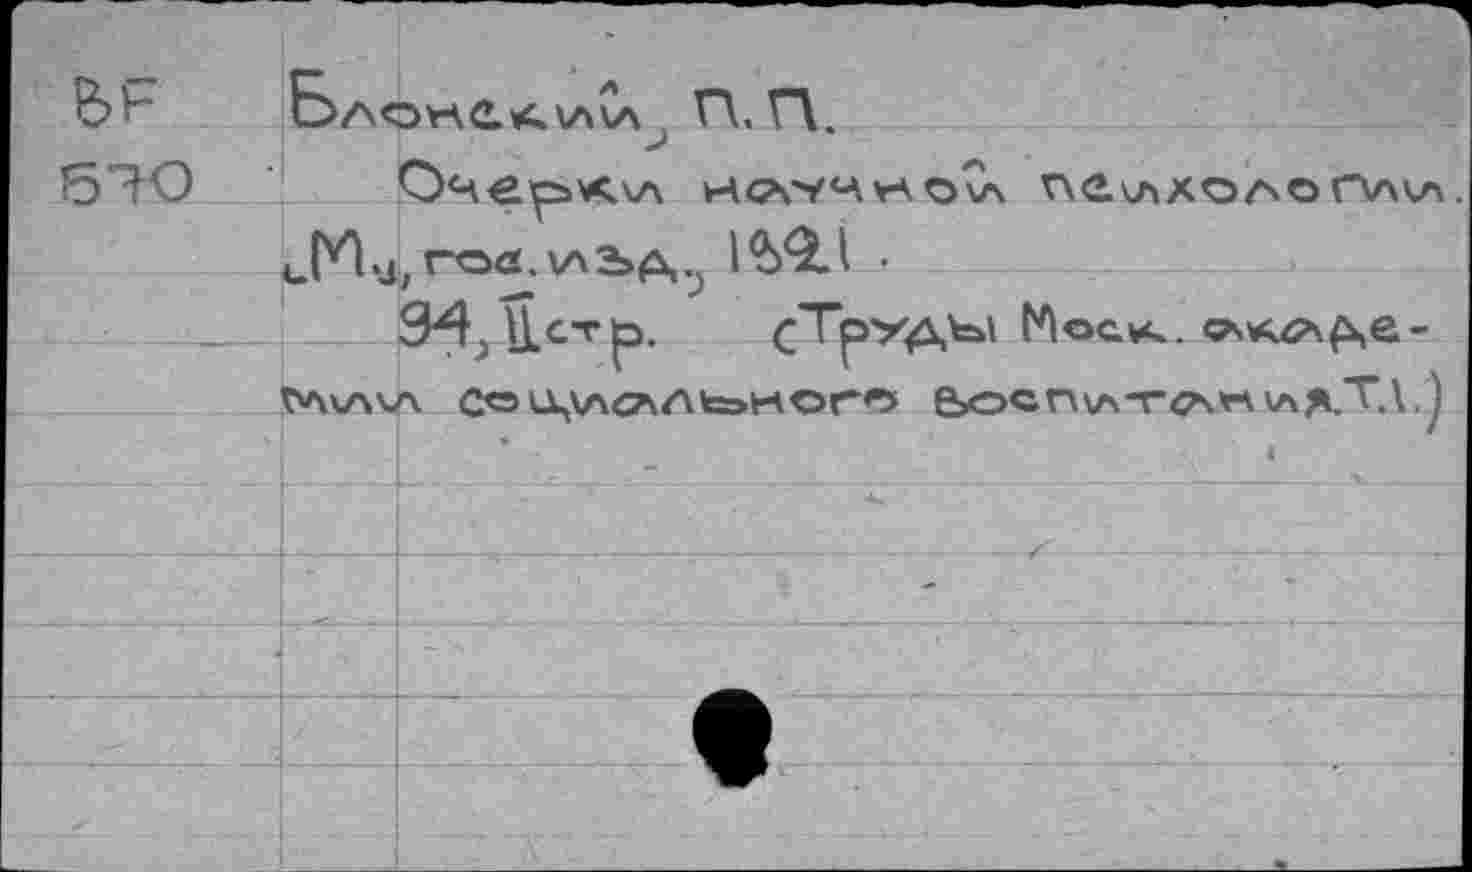 BF Блонский, П. П.
570 Очерки научной психологии.
[М], гос. изд., 1921.
94, II стр. (Труды Моск. акаде-
мии социального воспитания. Т.1.)